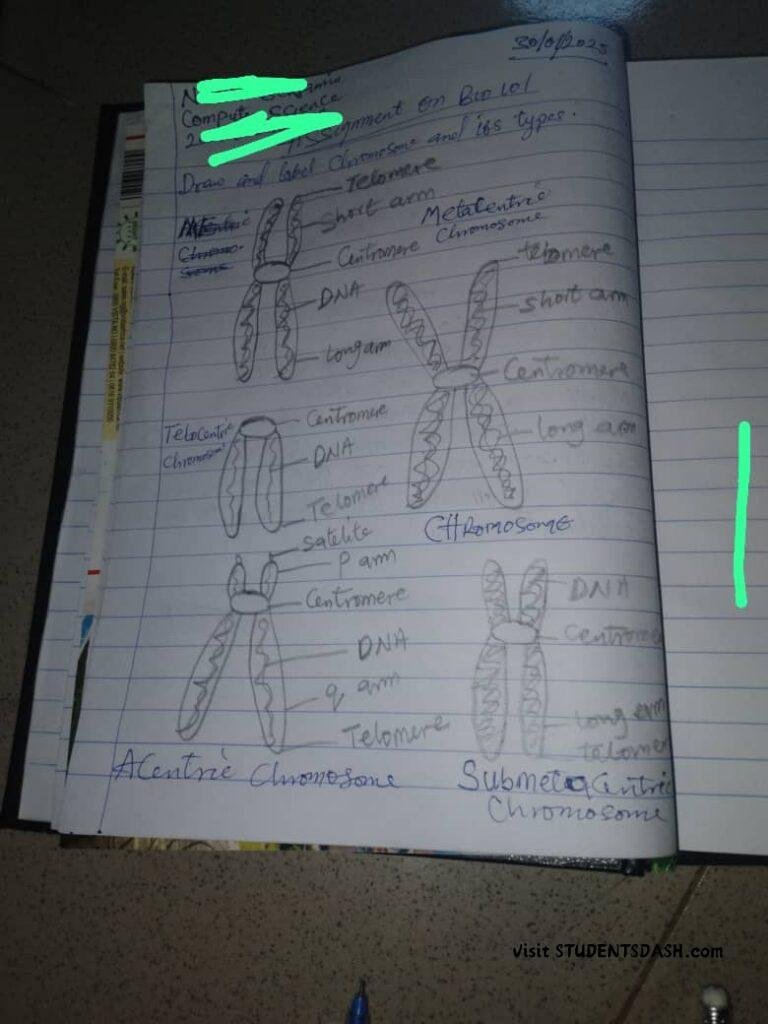 30/01/2025
Computer Science
2
Assignment on Bio 101
Draw and label Chromosome and its types.
Telomere
short arm
Centromere
DNA
Long arm
Metacentric
Chromosome
telomere
short arm
Centromere
long arm
CHROMOSOME
Telocentric
Chromosome
Centromere
DNA
Telomere
satelite
P arm
Centromere
DNA
q arm
Telomere
ACentric Chromosome
DNA
Centrome
long arm
telomer
Submetacentric
Chromosome
Visit STUDENTSDASH.com